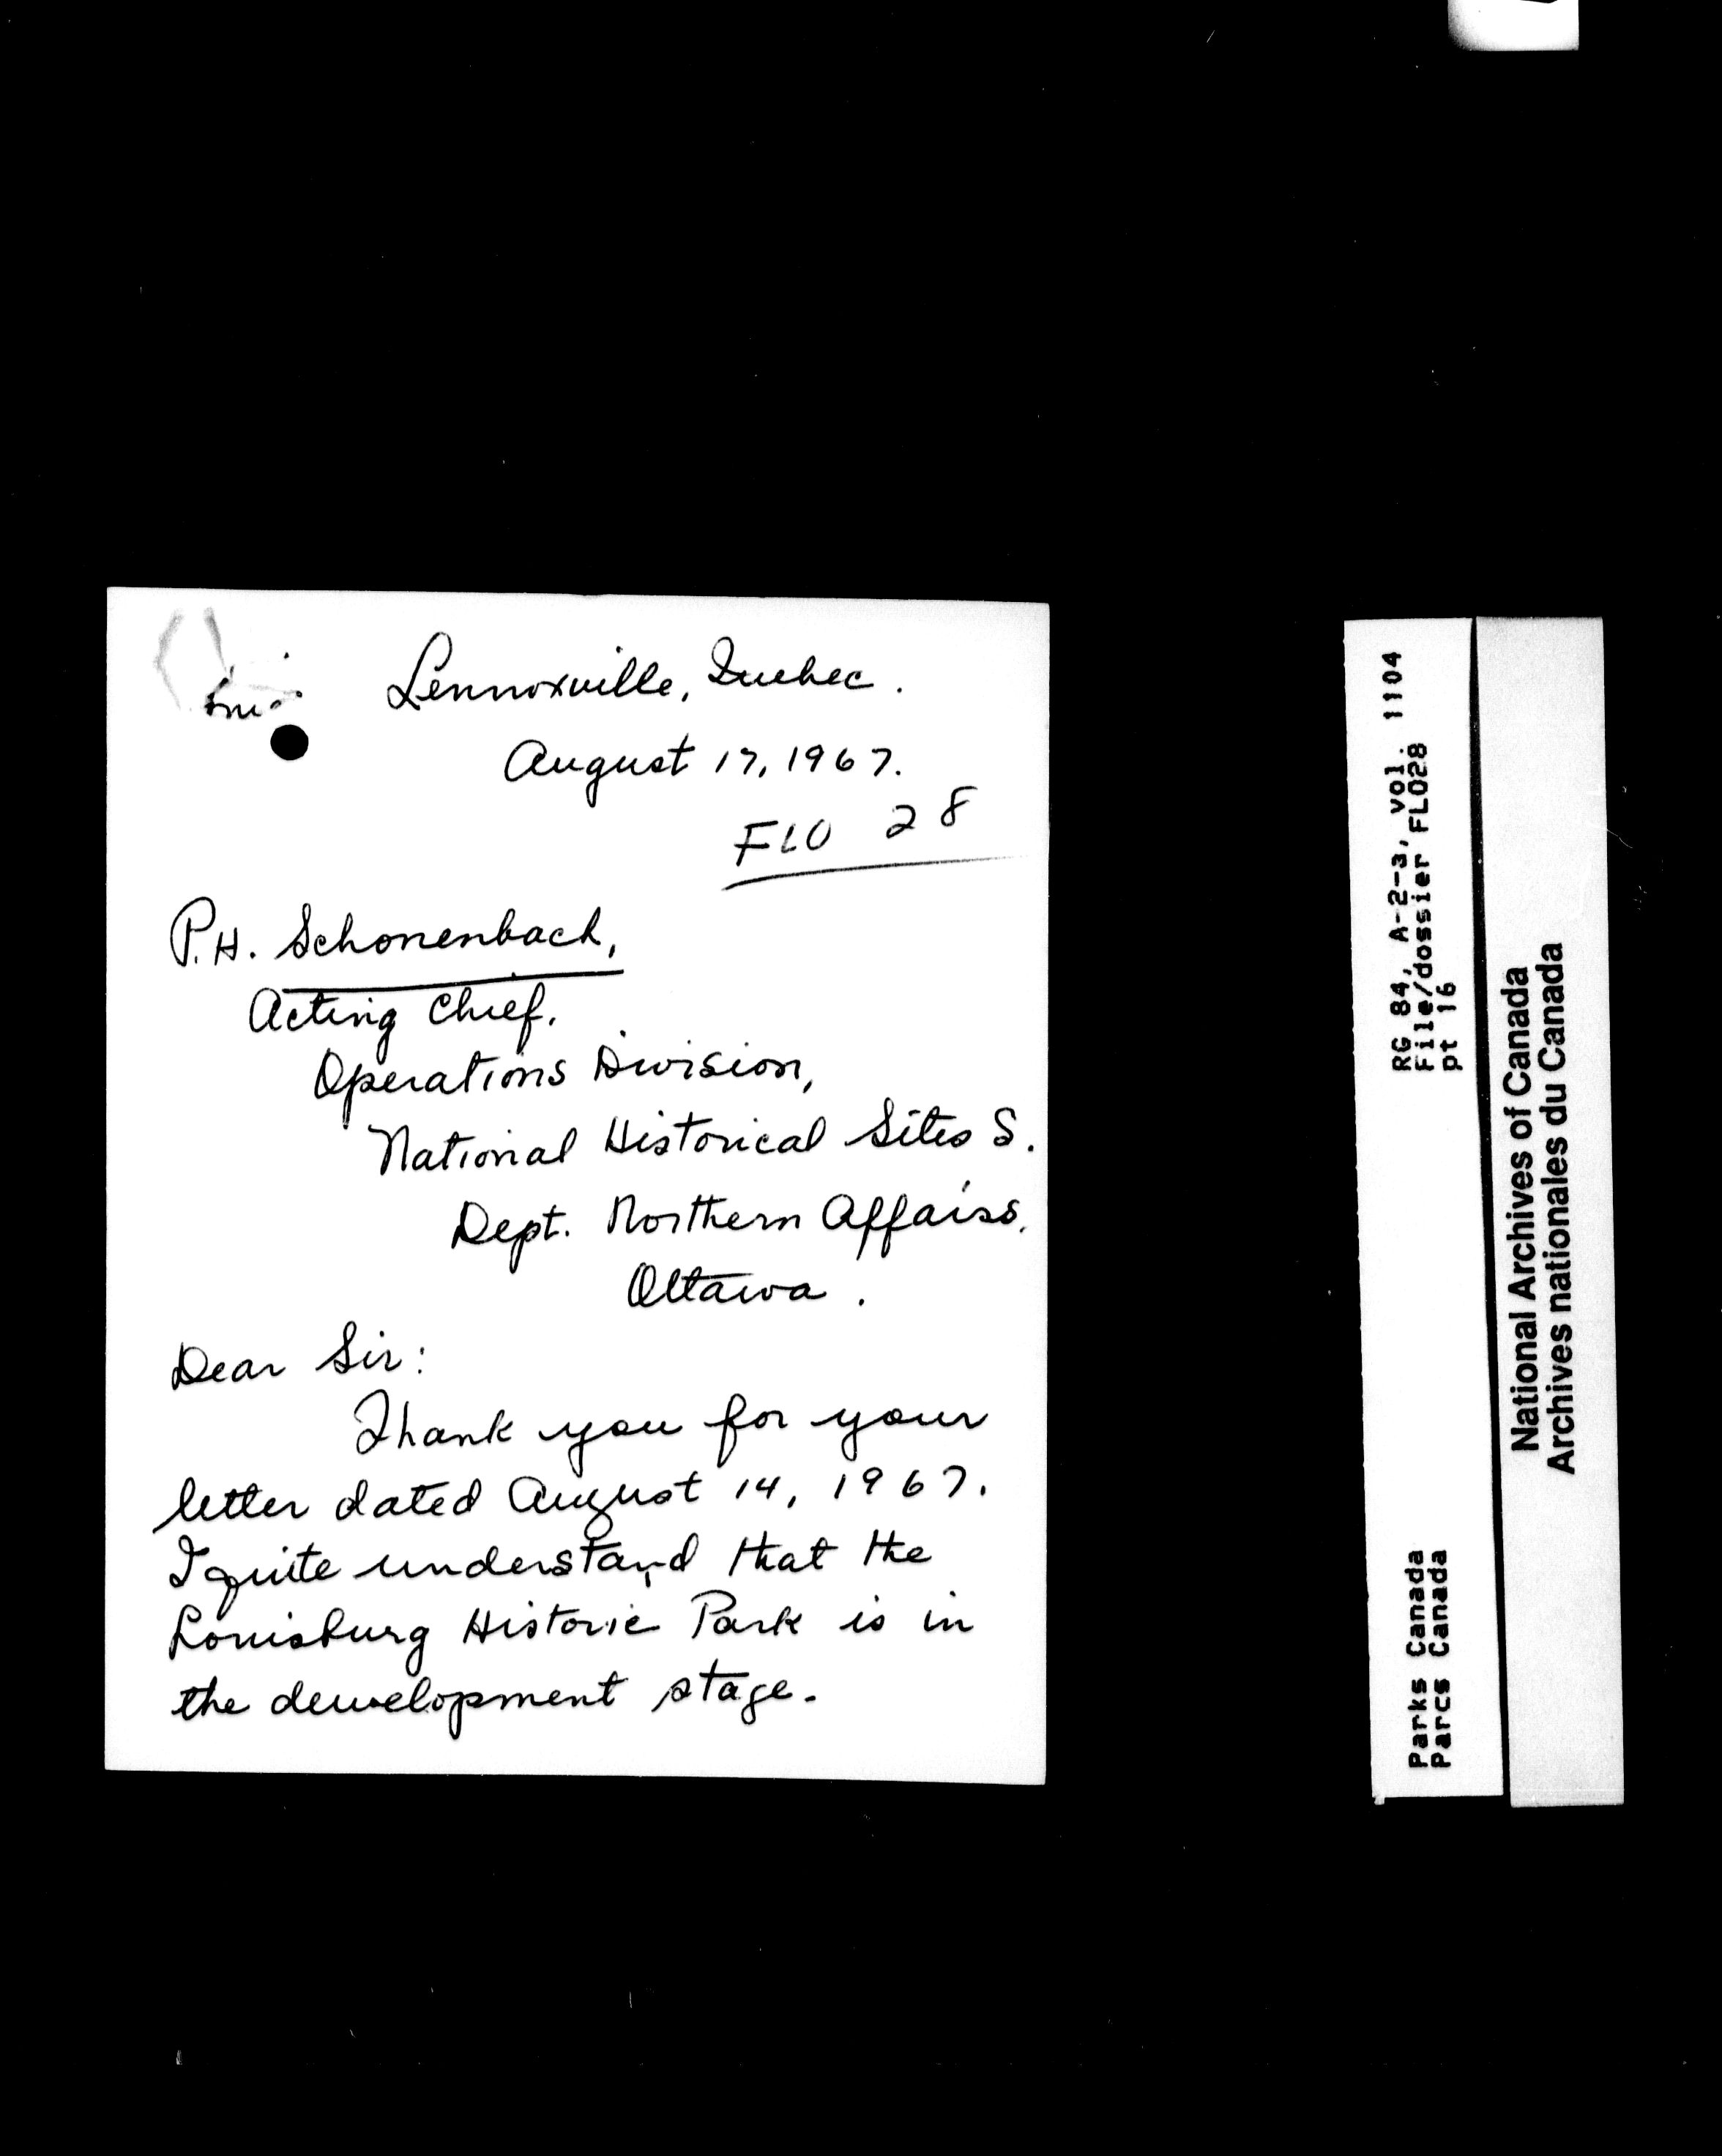 Lennoxville, Quebec.
August 17, 1967.
FLO 28
P.H. Schonenbach,
Acting Chief,
Operations Division,
National Historical Sites S.
Dept. Northern Affairs.
Ottawa.
Dear Sir:
Thank you for your
letter dated August 14, 1967.
I quite understand that the
Louisburg Historic Park is in
the development stage.
RG 84, A-2-3, vol. 1104
File/dossier FLO28
pt 16
Parks Canada
Parcs Canada
National Archives of Canada
Archives nationales du Canada